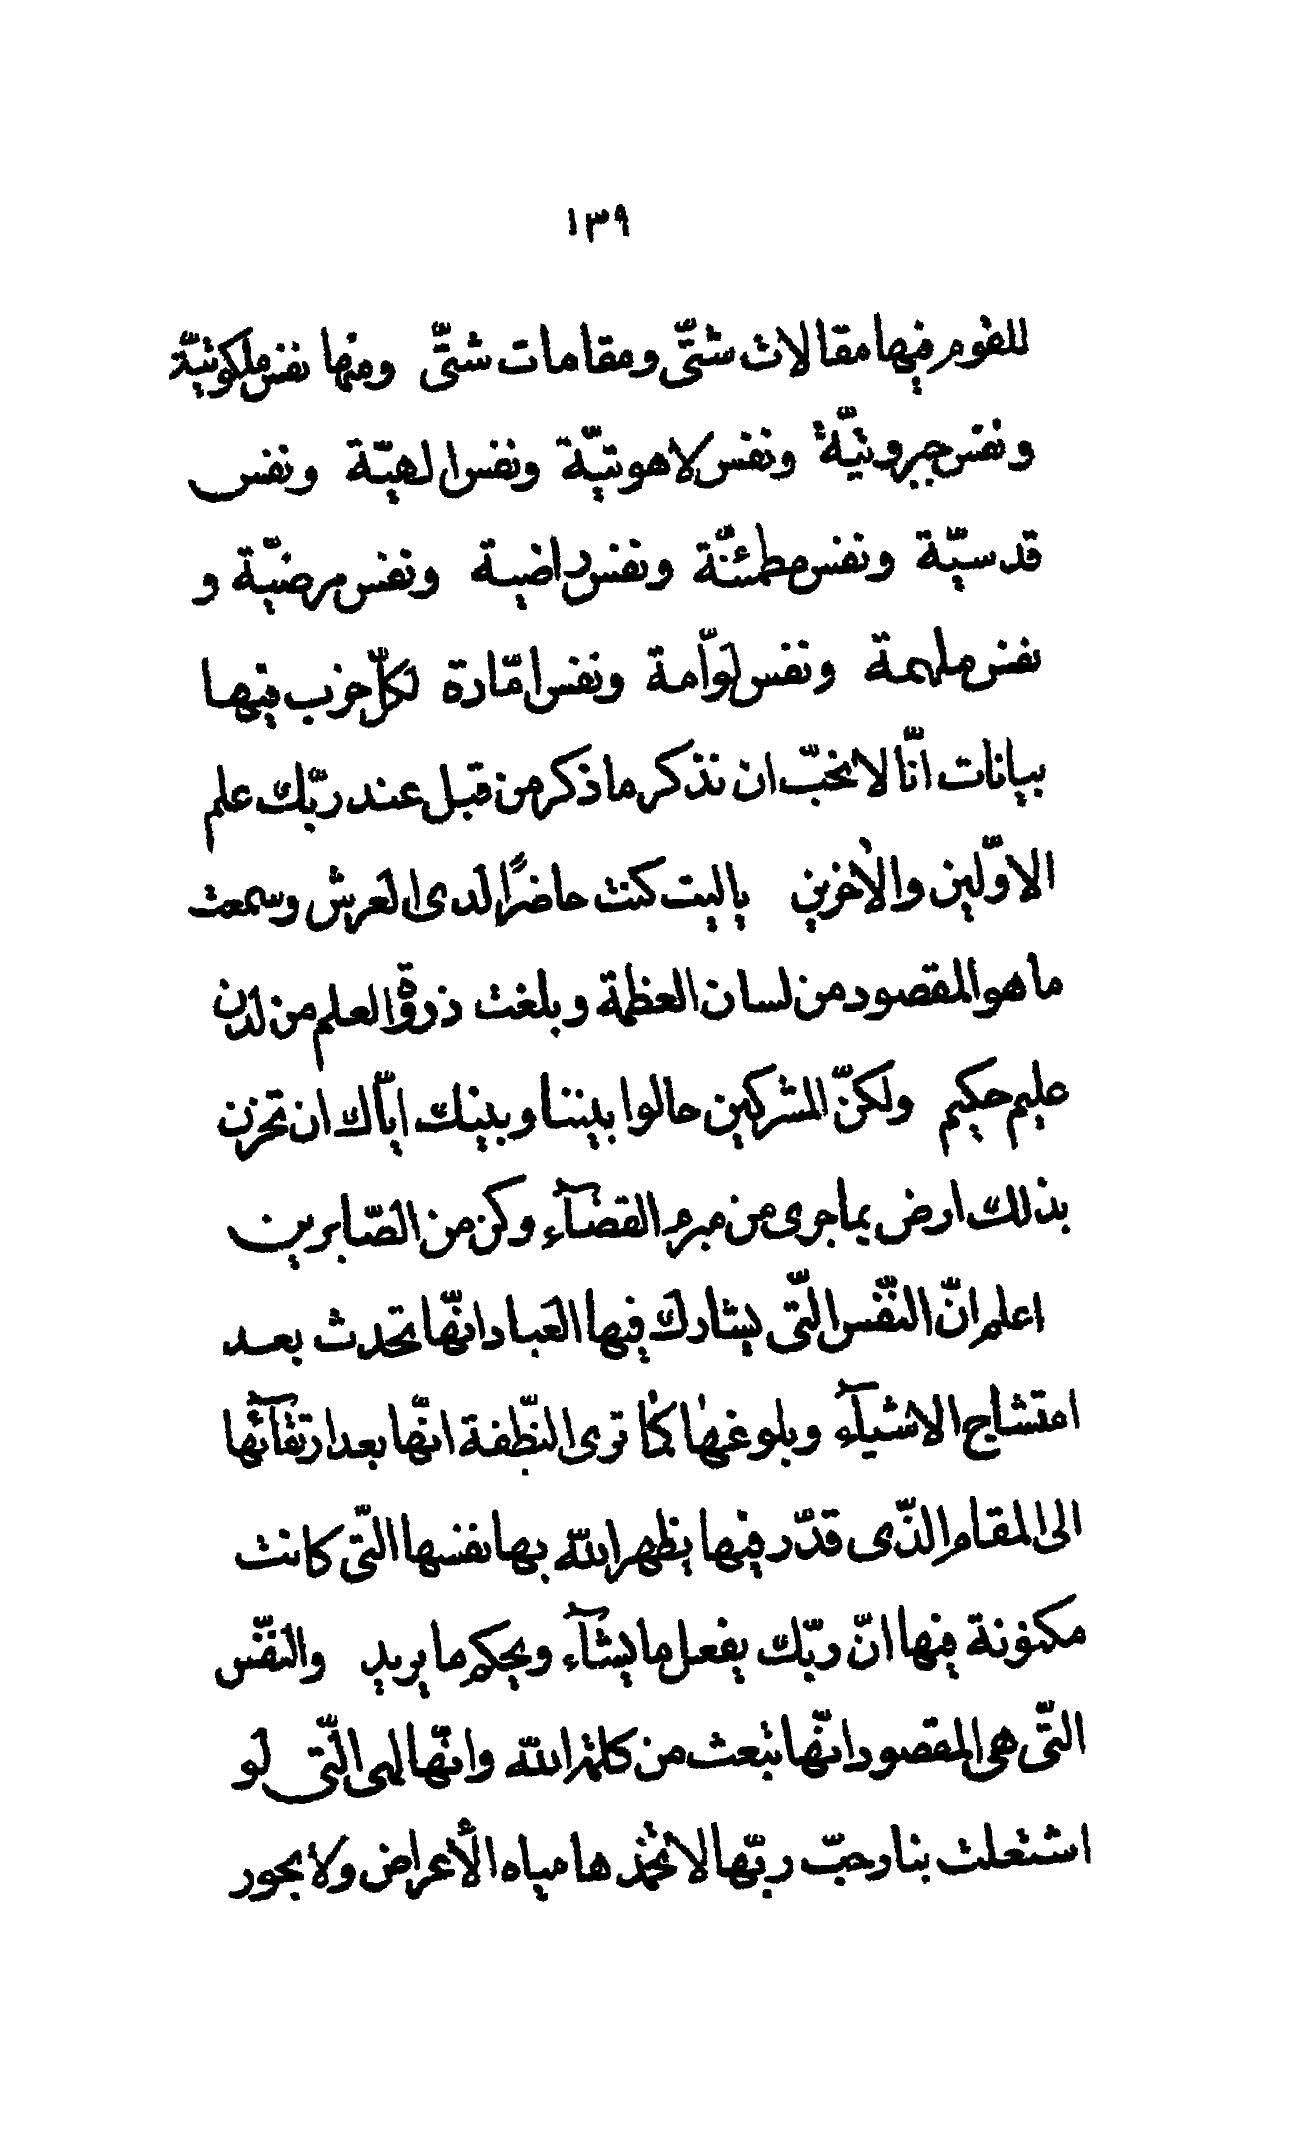 ١٣٩
للقوم فيها مقالات شتّى ومقامات شتّى ومنها نفس ملكوتيّة
ونفس جبروتيّة ونفس لاهوتيّة ونفس الهيّة ونفس
قدسيّة ونفس مطمئنّة ونفس راضية ونفس مرضيّة و
نفس ملهمة ونفس لوّامة ونفس امّارة لكلّ حزب فيها
بيانات انّا لا نحبّ ان نذكر ما ذكر من قبل عند ربّك علم
الاوّلين والاخرين ياليت كنت حاضرًا لدى العرش وسمعت
ما هو المقصود من لسان العظمة وبلغت ذروة العلم من لدن
عليم حكيم ولكنّ المشركين حالوا بيننا وبينك ايّاك ان تحزن
بذلك ارض بما جرى من مبرم القضآء وكن من الصّابرين
اعلم انّ النّفس الّتى يشارك فيها العباد انّها تحدث بعد
امتشاج الاشيآء وبلوغها كما ترى النّطفة انّها بعد ارتقآئها
الى المقام الّذى قدّر فيها يظهر الله بها نفسها الّتى كانت
مكنونة فيها انّ ربّك يفعل ما يشآء ويحكم ما يريد والنّفس
الّتى هى المقصود انّها تبعث من كلمة الله وانّها لهى الّتى لو
اشتعلت بنار حبّ ربّها لا تخمدها مياه الأعراض ولا بحور